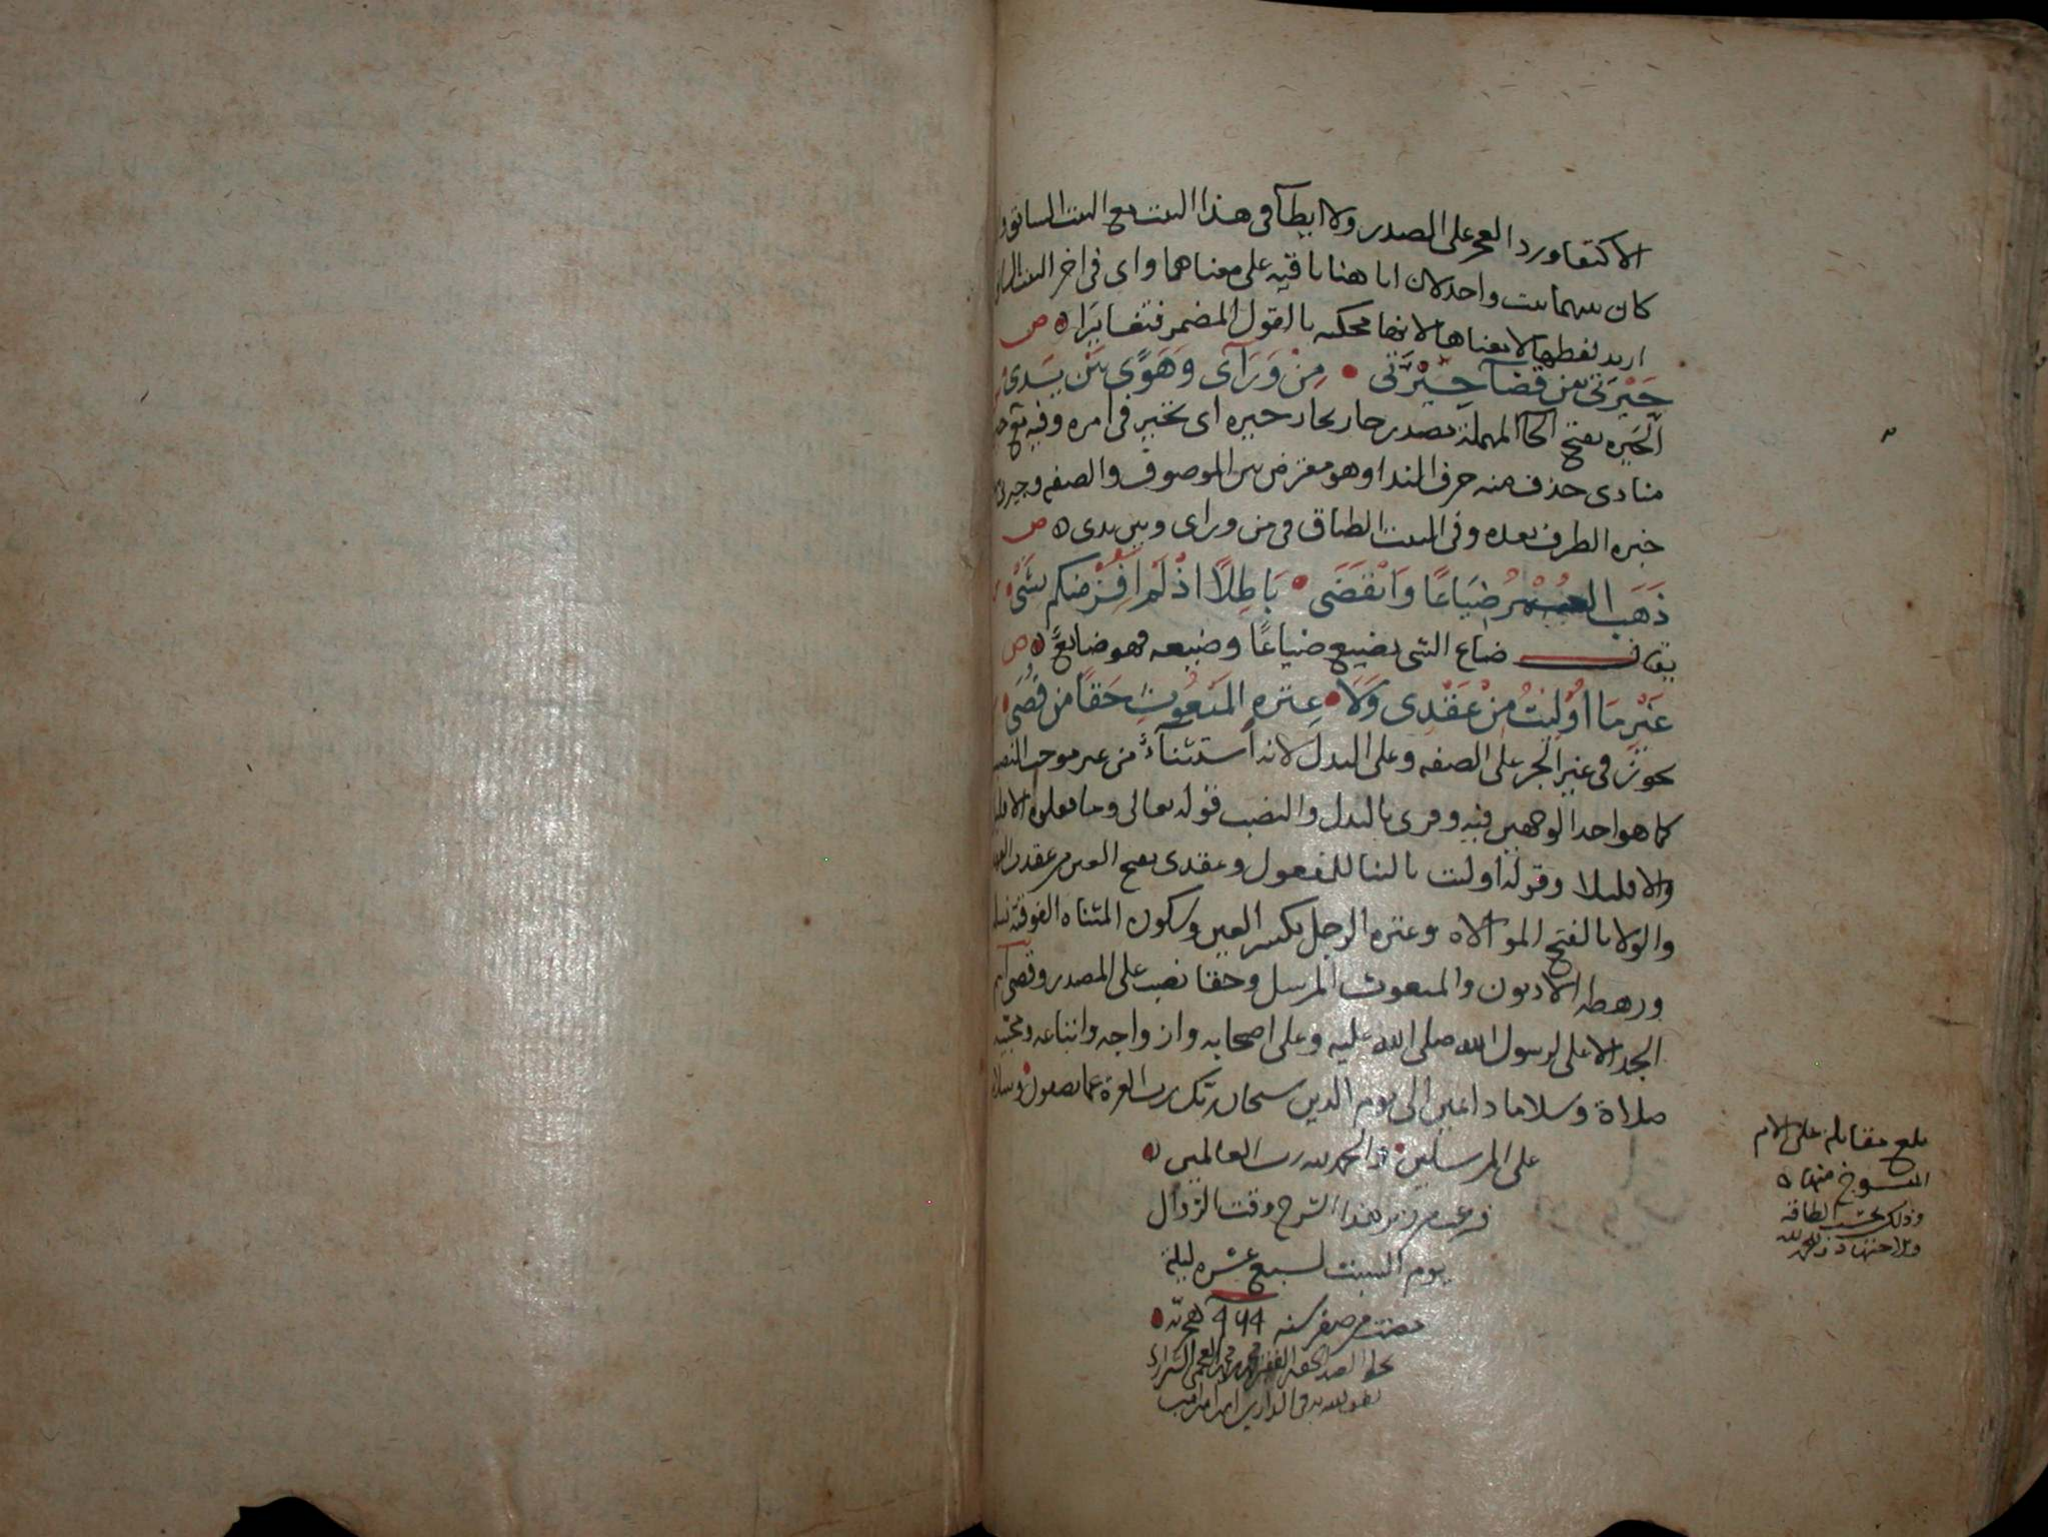 الاكتفا ورد العجز على الصدر ولا ايطآ فى هذا البيت مع البيت السابق
كان بينهما بيت واحد لان ايا هنا باقيه على معناها واى فى اخر البيت
اريد لفظها لا معناها لانها محكيه بالقول المضمر فتغايرا ص
حَيْرَتى بين قضآ جِيْرَتى مِنْ وَرَآى وَهَوًى بَيْنَ يَدى
الحَيره بفتح الحآ المهملة مصدر حار يحار حيره اى تحير فى امره وفيه
منادى حذف منه حرف الندا وهو معترض بين الموصوف والصفه
خبره الظرف بعده وفى البيت الطباق فى من وراى وبين يدى ص
ذَهَبَ العُمْرُ ضَيَاعًا وَانْقَضَى بَاطِلًا اذْ لَمْ افُزْ منكم بشَىْ
يقال ضاع الشى يضيع ضياعًا وضيعه فهو ضايعٌ ص
غَيْرِ مَا اُوْلِيْتُ مِنْ عَقْدِى وَلَا عِتره المَبْعُوثِ حَقًا من قُصَى
يجوز فى غير الجر على الصفه وعلى البدل لانه استثنآء من غير موجب
كما هو احد الوجهين فيه وقرى بالبدل والنصب قوله تعالى وما فعلوه الا
والا قليلا وقوله اوليت بالبنا للمفعول وعقدى بفتح العين من عقدت
والولا بالفتح الموالاه وعتره الرجل بكسر العين وسكون المثناه الفوقية
ورهطه الادنون والمبعوث المرسل وحقا نصب على المصدر وقصى
الجد الاعلى لرسول الله صلى الله عليه وعلى اصحابه وازواجه واتباعه
صلاة وسلاما دايمين الى يوم الدين سبحان ربك رب العزة عما يصفون وسلام
على المرسلين والحمد لله رب العالمين
فرغت من هذا الشرح وقت الزوال
يوم السبت لسبع عشره ليلة
مضت من صفر سنه هجريه
فى الدارين امين
بلغ مقابلة على الام
المنسوخ منها
وذلك بحسب الطاقه
والاجتهاد والحمد لله